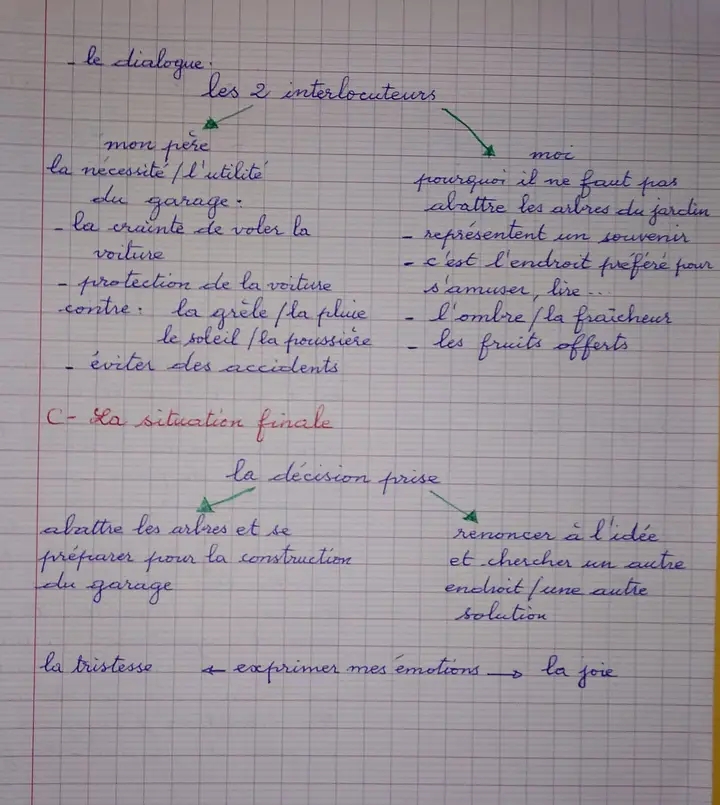 - le dialogue.
les 2 interlocuteurs
mon père
la nécessité / l'utilité
du garage.
- la crainte de voler la
voiture
- protection de la voiture
contre: la grêle / la pluie
le soleil / la poussière
- éviter des accidents
moi
pourquoi il ne faut pas
abattre les arbres du jardin
- représentent un souvenir
- c'est l'endroit préféré pour
s'amuser, lire...
- l'ombre / la fraîcheur
- les fruits offerts
C- La situation finale
la décision prise
abattre les arbres et se
préparer pour la construction
du garage
renoncer à l'idée
et chercher un autre
endroit / une autre
solution
la tristesse ← exprimer mes émotions → la joie